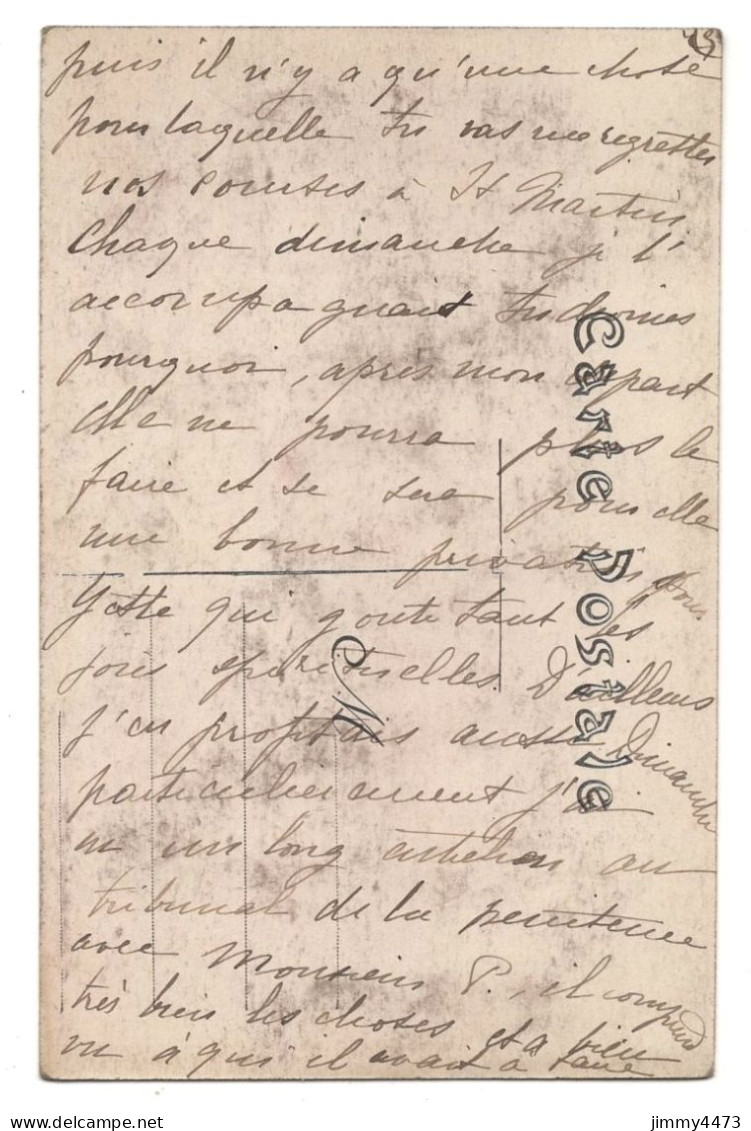 puis il n'y a qu'une chose
pour laquelle tu vas me regretter
nos courses à St Martin
Chaque dimanche je l'
accompagnait tu devines
pourquoi, après mon départ
elle ne pourra plus le
faire et se sera pour elle
une bonne privation, pour
Yette qui goute tant les
joies spirituelles D'ailleurs
j'en profitais aussi Dimanche
particulièrement j'ai
eu un long entretien au
tribunal de la penitence
avec Monsieur P., il comprend
très bien les choses et a bien
vu à qui il avait à faire
Carte Postale
M
jimmy4473